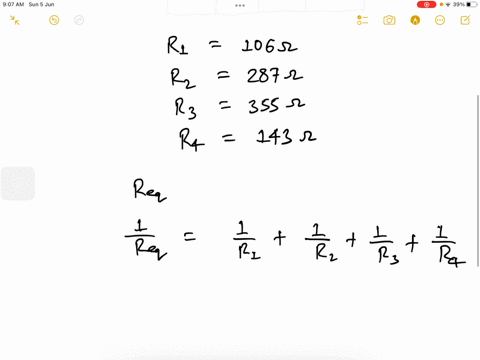 9:07 AM Sun 5 Jun
39%
R1 = 106 Ω
R2 = 287 Ω
R3 = 355 Ω
R4 = 143 Ω
Req
1/Req = 1/R1 + 1/R2 + 1/R3 + 1/R4